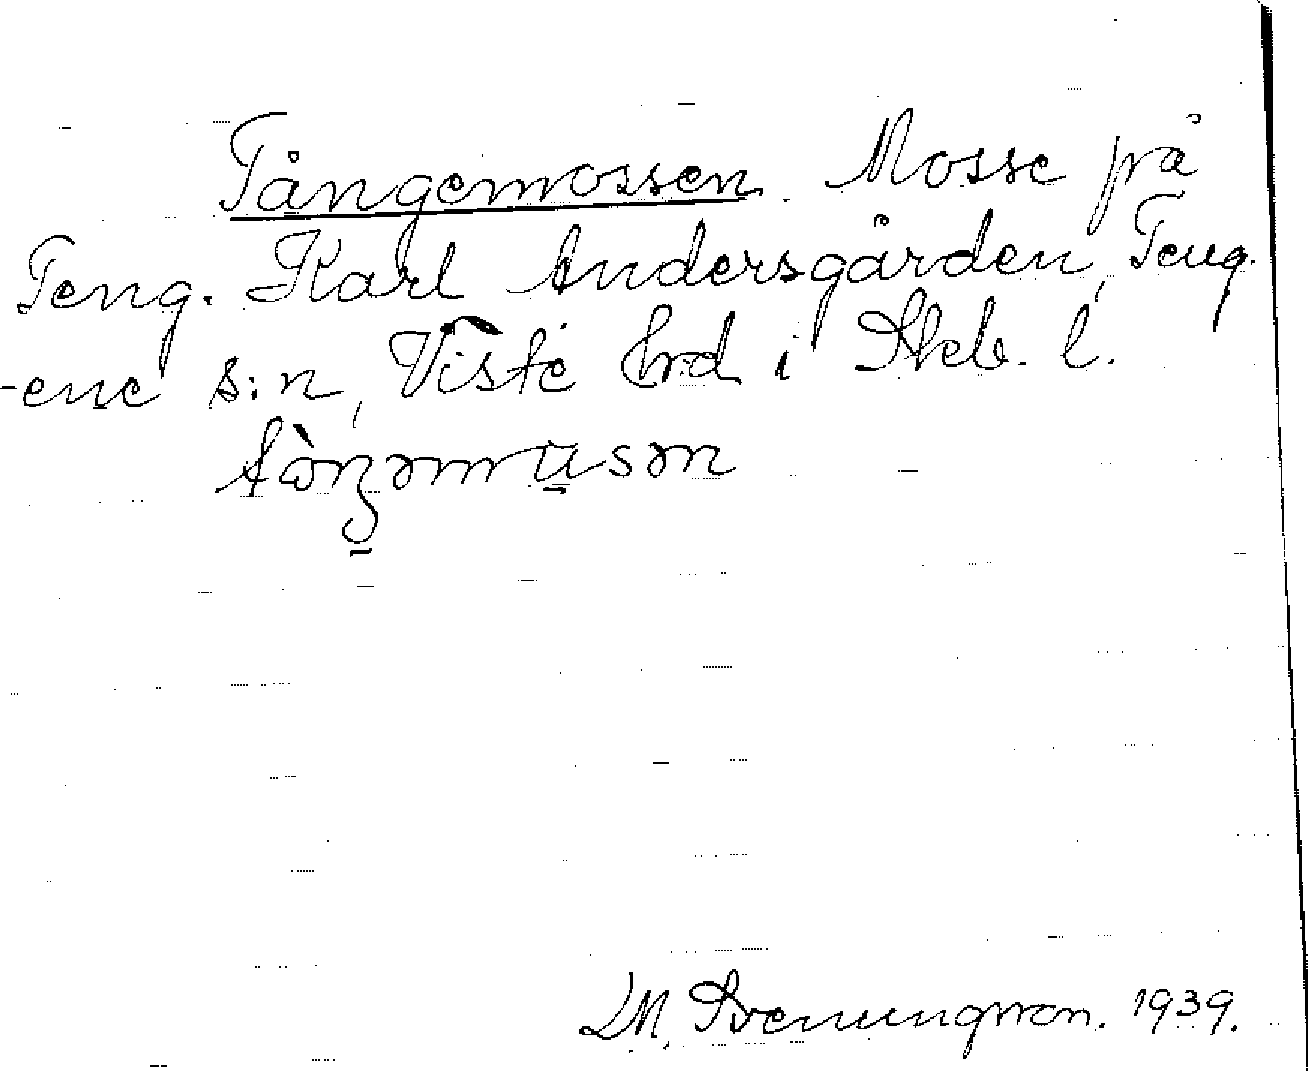 Tångemossen. Mosse på
Teng. Karl Andersgården, Teng.
-ene s:n, Viste hrd i Skb. l.
M. Svenungsson. 1939.